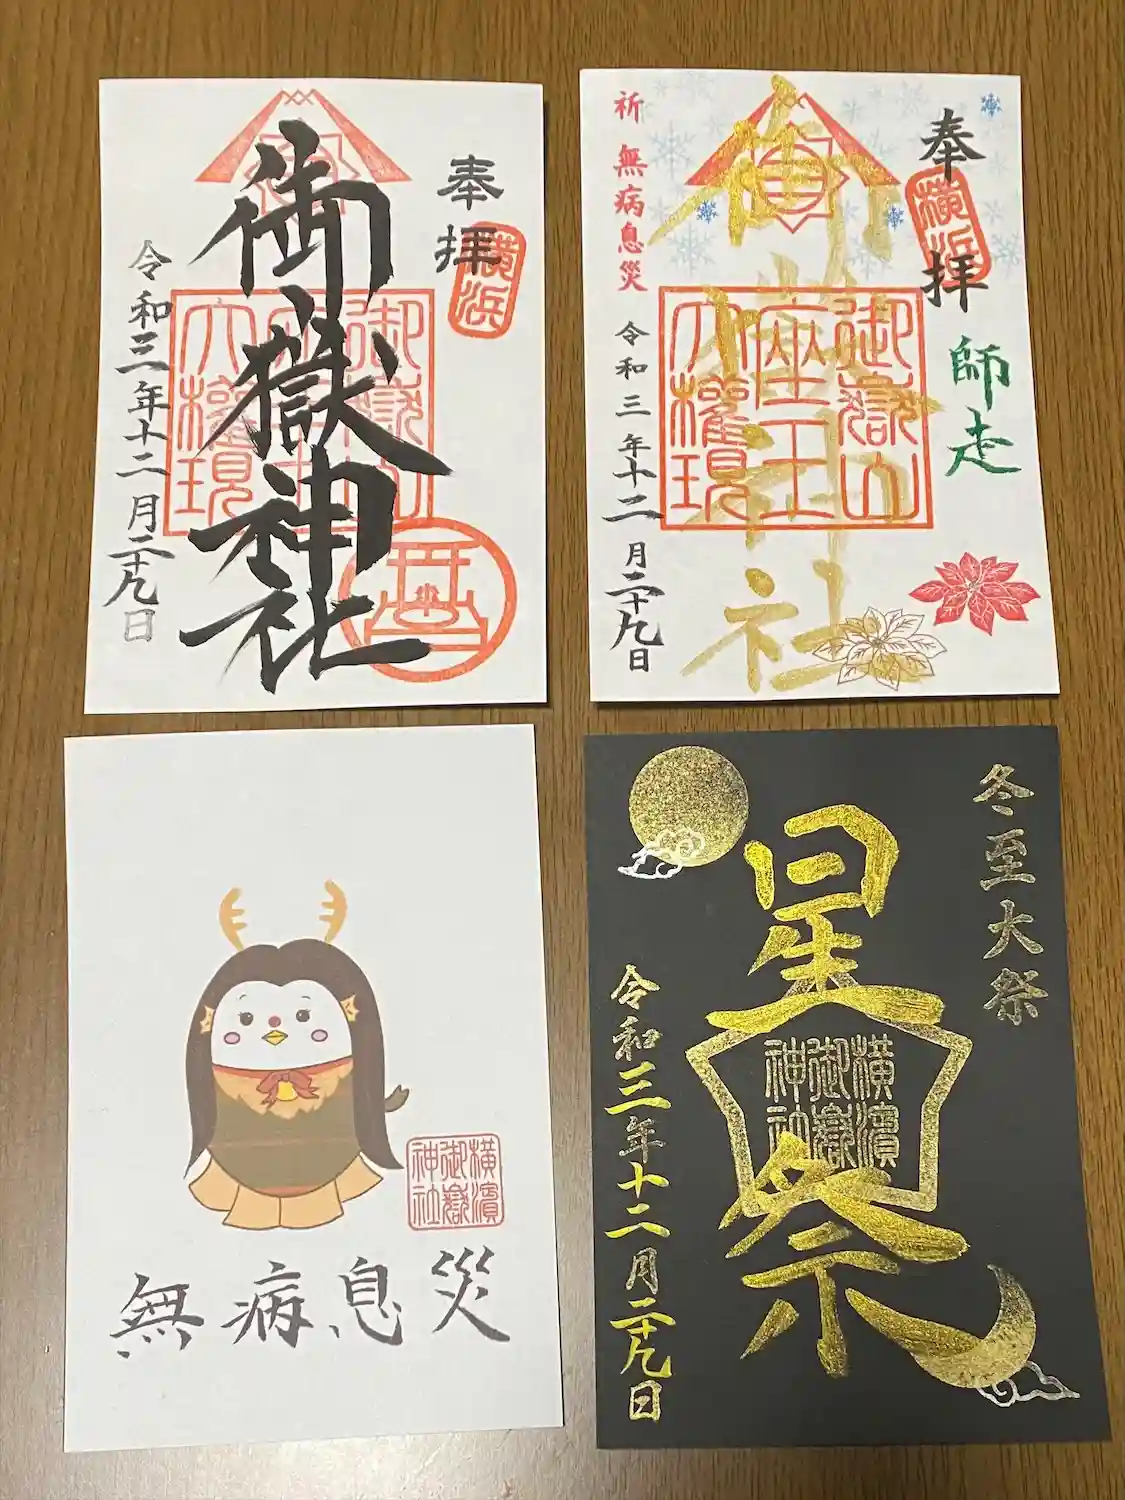 奉拝
横浜
御嶽神社
御嶽山
座王
大権現
令和三年十二月二十九日
奉拝
横浜
師走
御嶽神社
御嶽山
座王
大権現
祈 無病息災
令和三年十二月二十九日
横濱
御嶽
神社
無病息災
冬至大祭
星祭
横濱
御嶽
神社
令和三年十二月二十九日